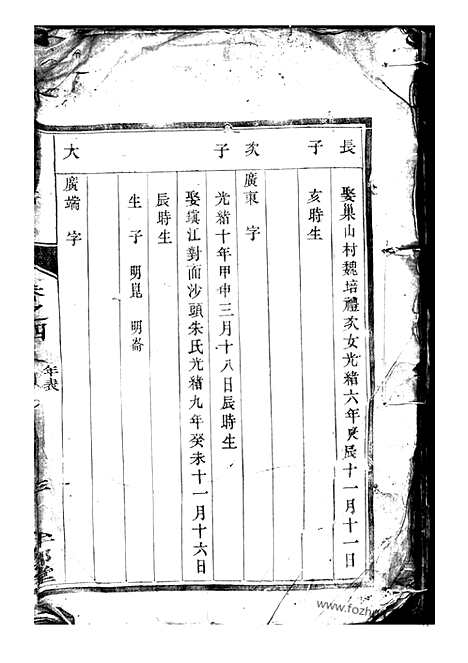 長
娶巢山村魏培禮次女光緒六年庚辰十一月十一日
子
亥時生
次
廣東 字
子
光緒十年甲申三月十八日辰時生
娶鎮江對面沙頭朱氏光緒九年癸未十一月十六日
辰時生
生子 明崑 明崙
大
廣端 字
卷之四
年表
三
www.fozhu